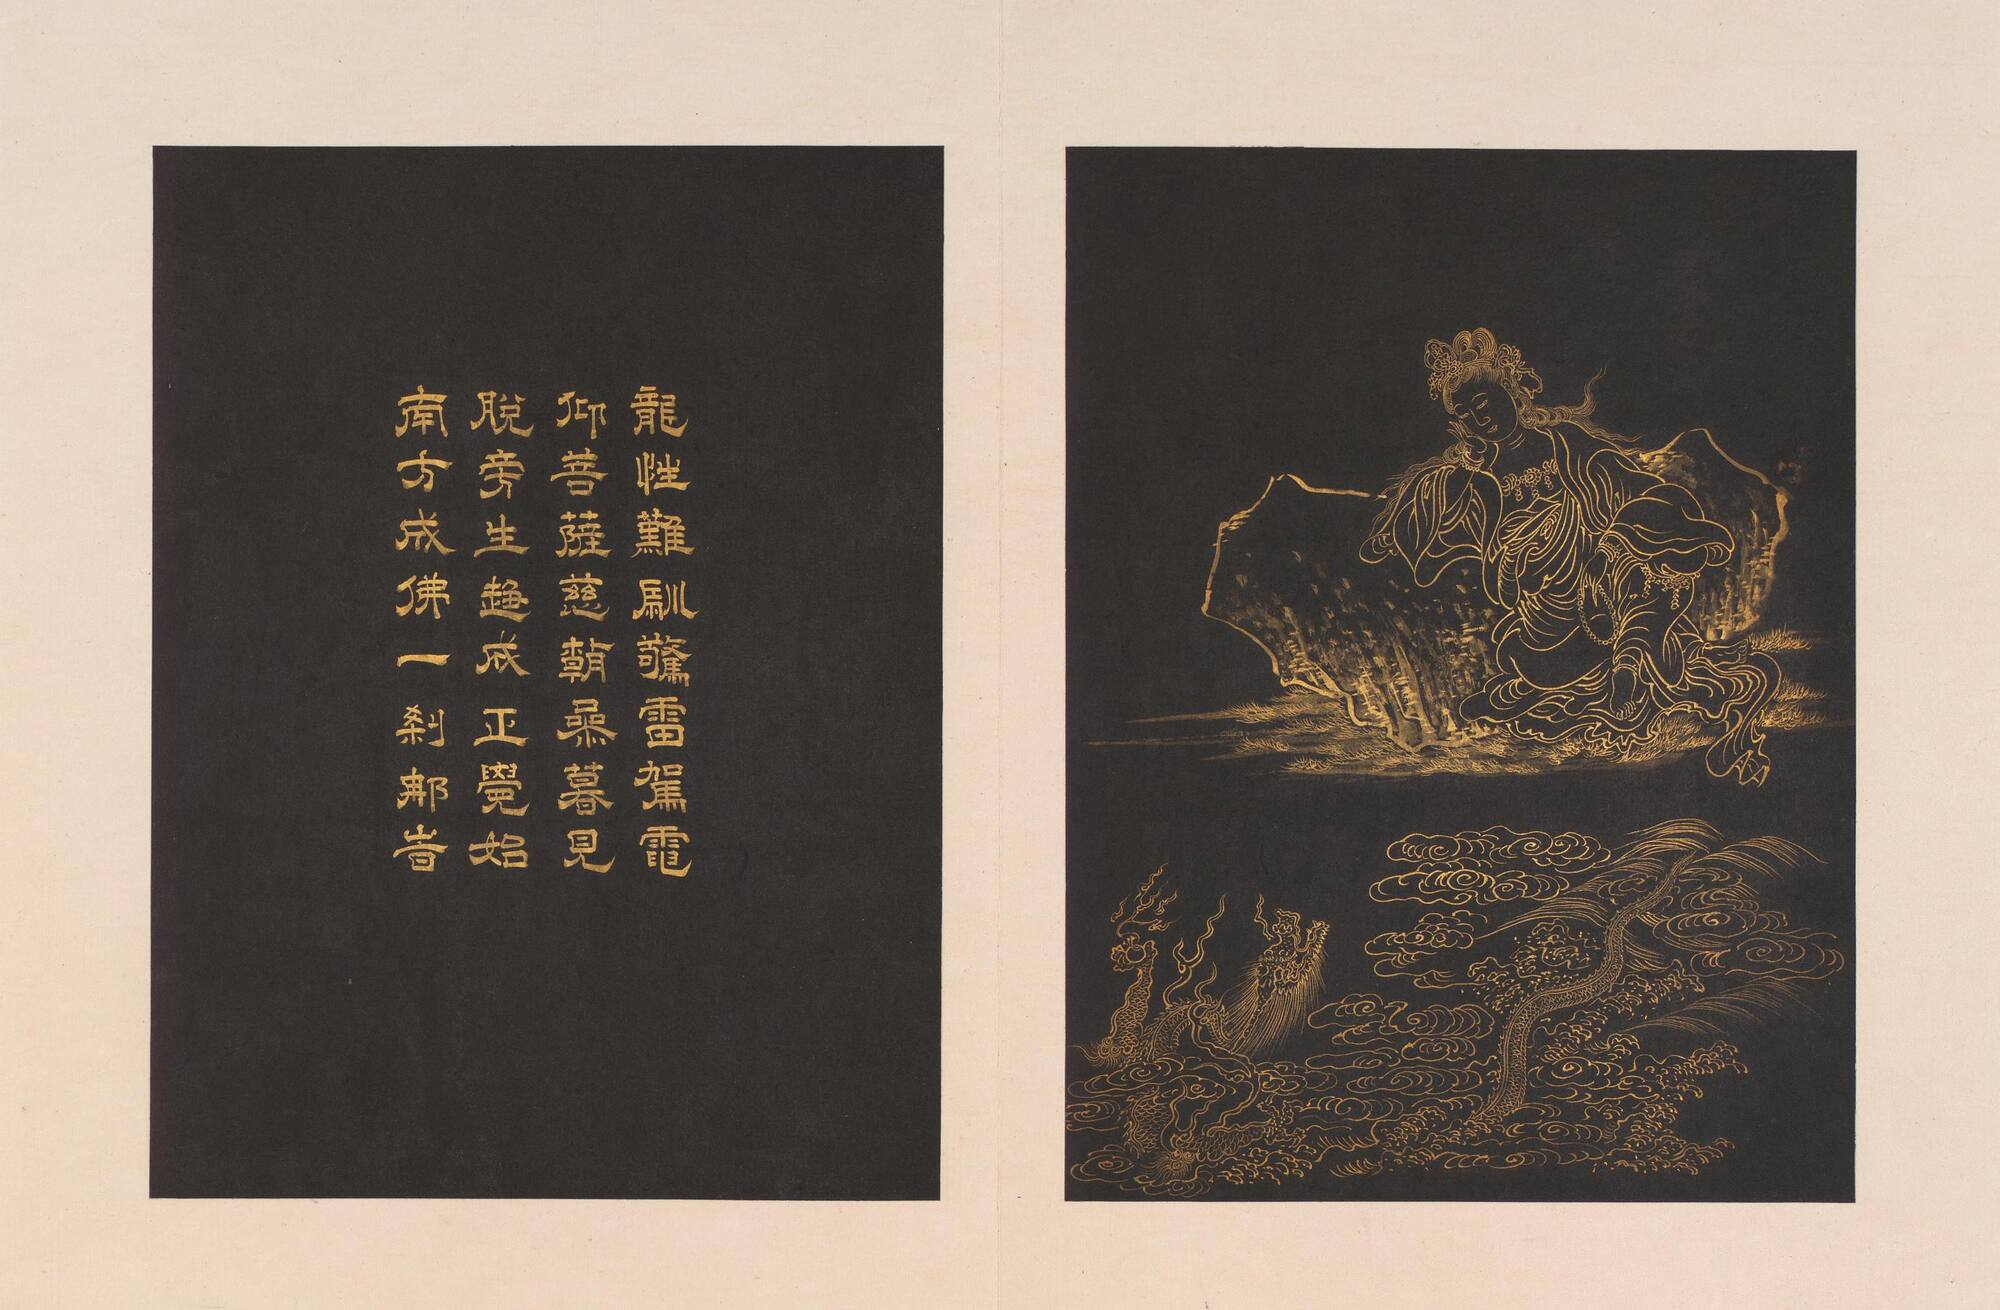 龍性難馴驚雷駕電
仰菩薩慈朝參暮見
脫旁生趣成正覺始
南方成佛一剎那旹